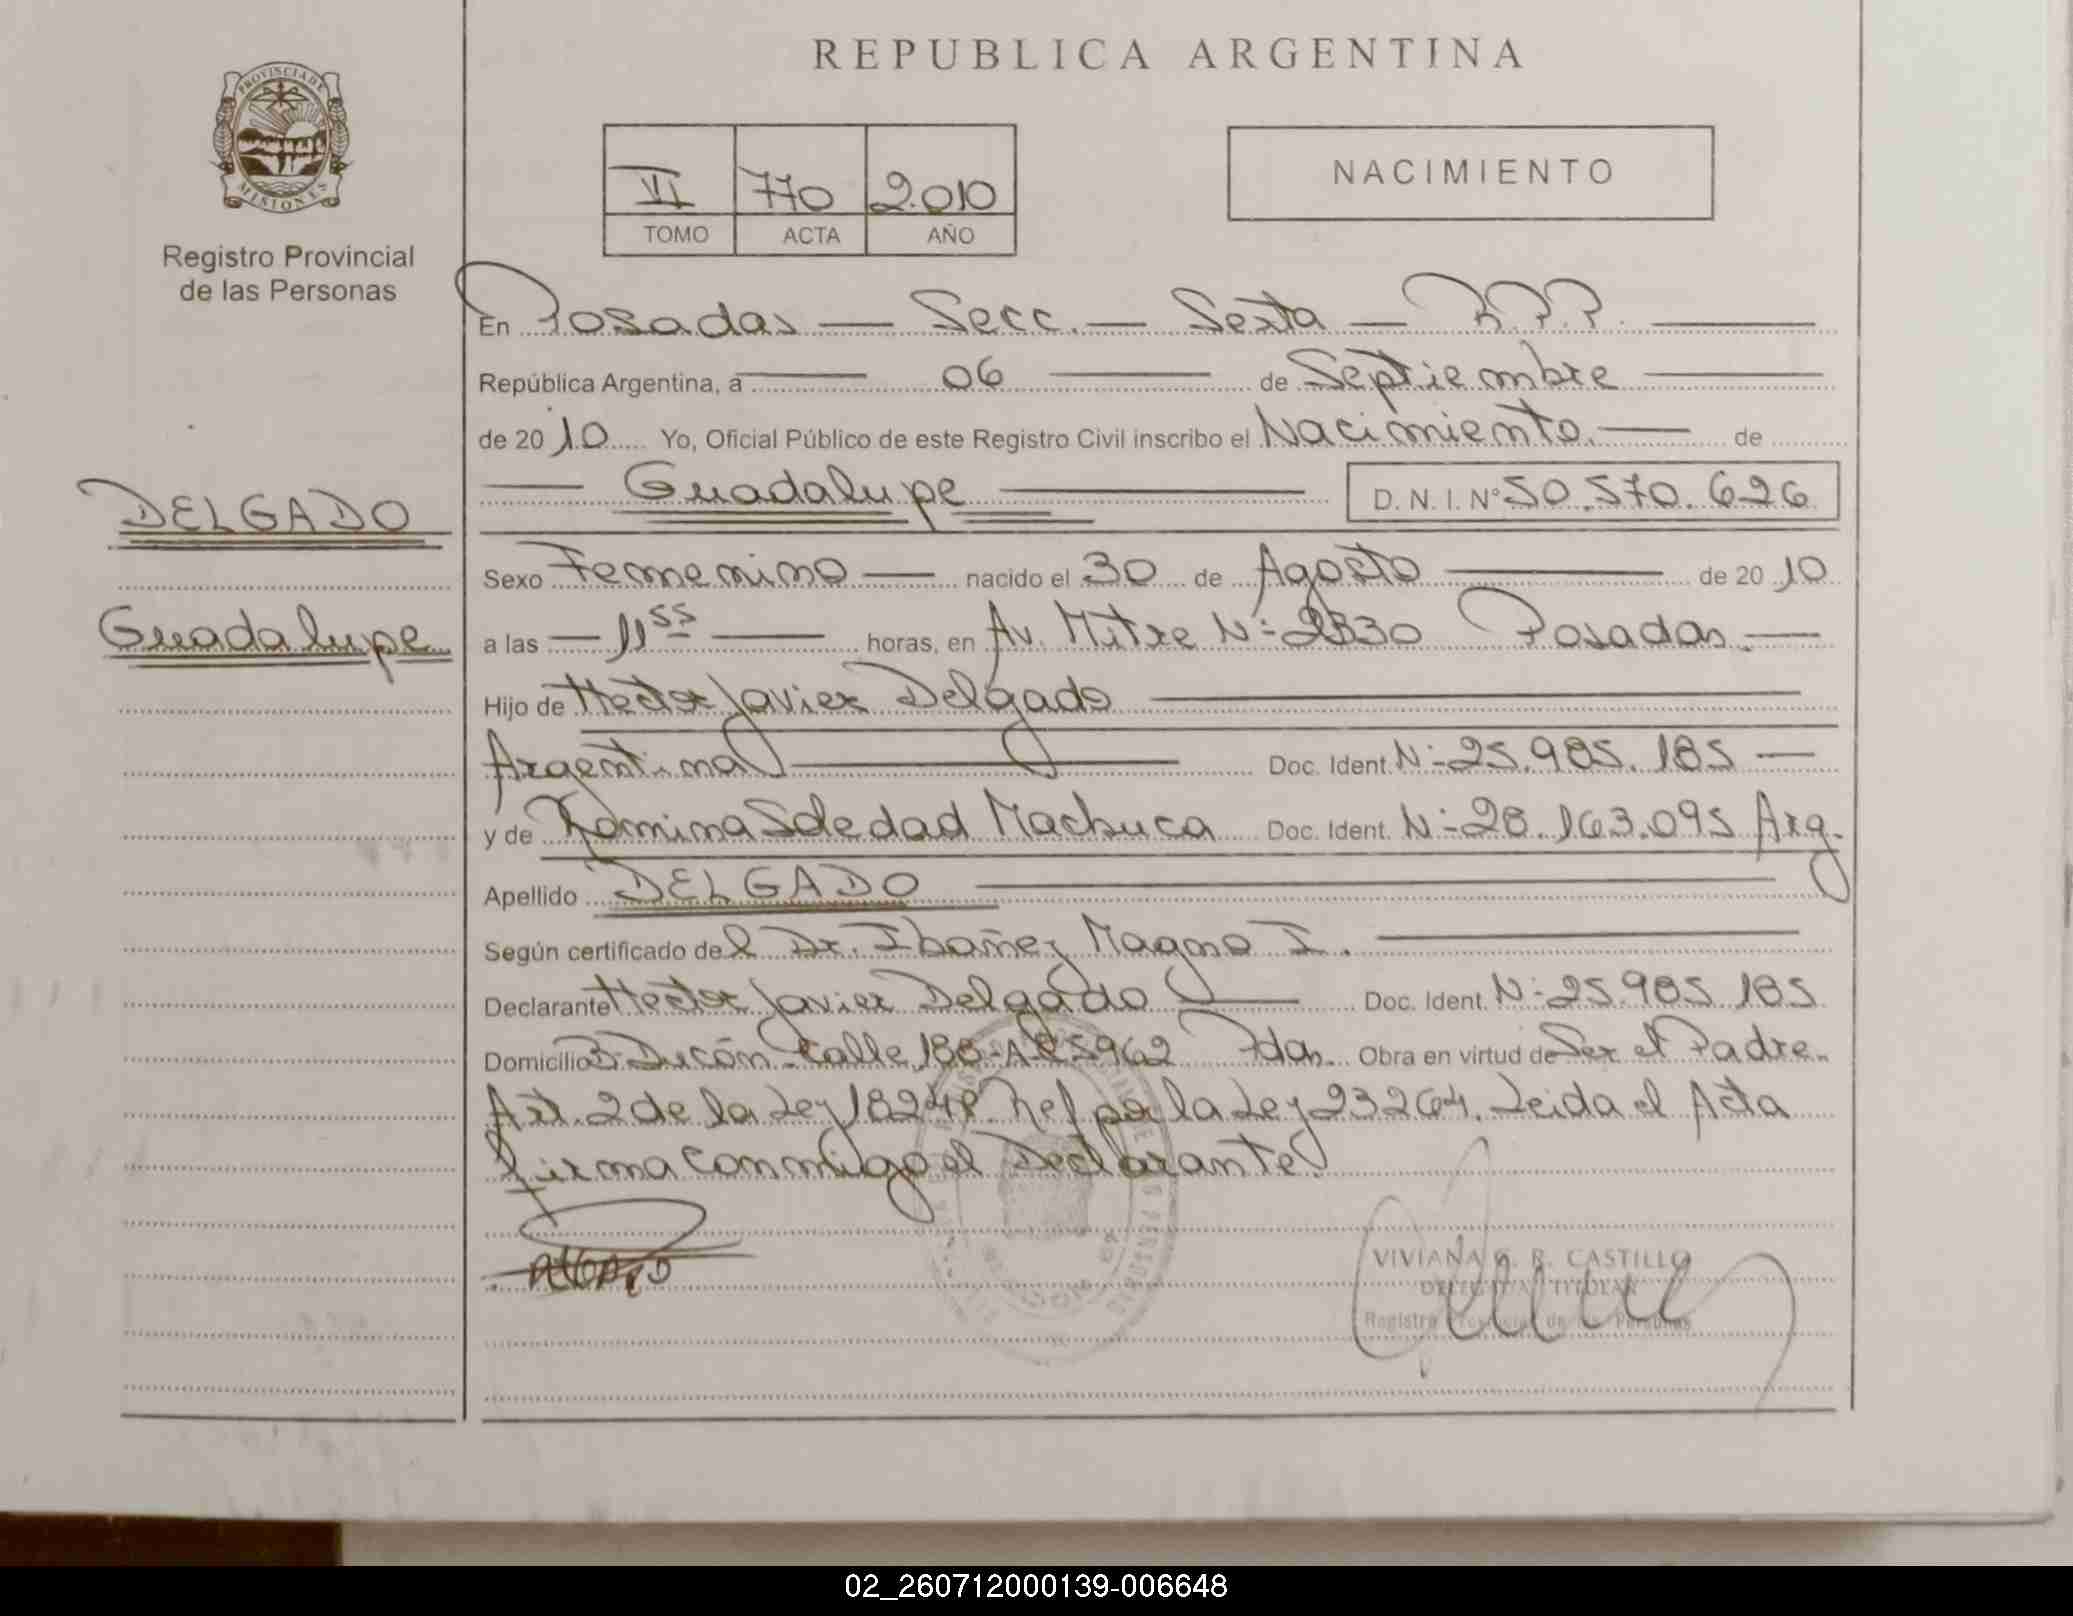 REPUBLICA ARGENTINA
PROVINCIA DE MISIONES
Registro Provincial
de las Personas
VI 770 2.010
TOMO ACTA AÑO
NACIMIENTO
En Posadas — Secc. — Sexta — R.P.P.
República Argentina, a 06 de Septiembre
de 2010 Yo, Oficial Público de este Registro Civil inscribo el Nacimiento. de
Guadalupe D.N.I. Nº 50.570.626
DELGADO
Guadalupe
Sexo Femenino nacido el 30 de Agosto de 2010
a las 11 55 horas, en Av. Mitre Nº 2330 Posadas.
Hijo de Hector Javier Delgado
Argentina Doc. Ident. Nº 25.985.185
y de Romina Soledad Machuca Doc. Ident. Nº 28.163.095 Arg.
Apellido DELGADO
Según certificado del Dr. Ibañez Magno I.
Declarante Hector Javier Delgado Doc. Ident. Nº 25.985.185
Domicilio Bº Calle 188 5962 Pdas. Obra en virtud de Ser el Padre.
Art. 2 de la Ley 18248 Ref por la Ley 23264. Leida el Acta
firma conmigo el Declarante.
VIVIANA G. R. CASTILLO
DELEGADA TITULAR
Registro Provincial de las Personas
02_260712000139-006648